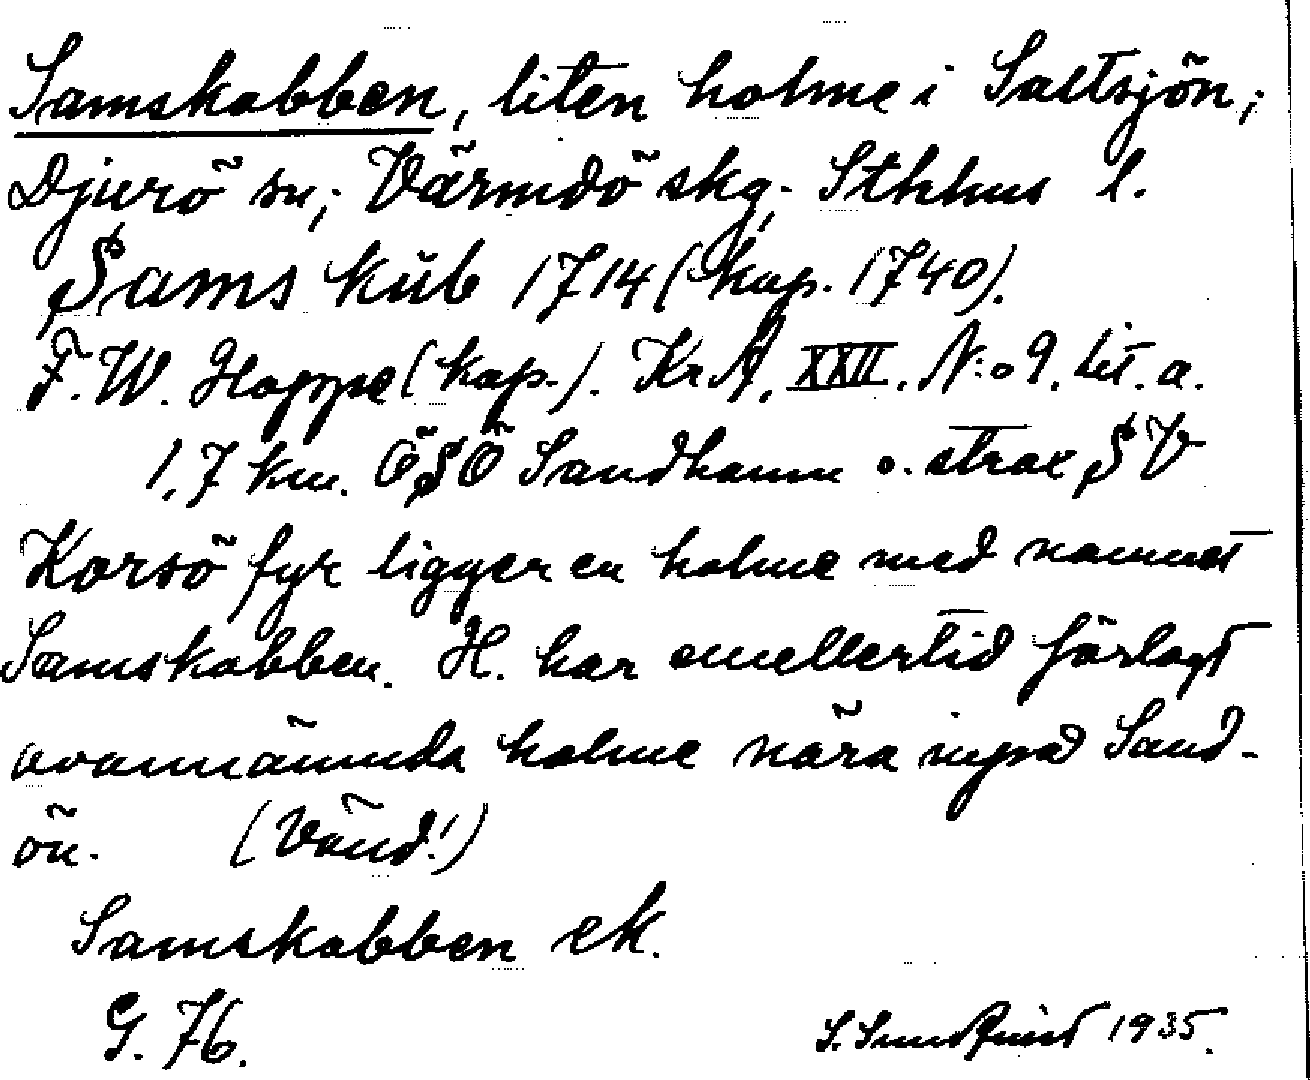 Samskobben, liten holme i Saltsjön;
Djurö sn; Värmdö skg. Sthlms l.
Sams kub 1714 (kop. 1740).
F. W. Hoppe (kop.). Kr A, XXII. N:o 9. lit. a.
1,7 km. ÖSÖ Sandhamn o. strax SV
Korsö fyr ligger en holme med namnet
Samskobben. H. har emellertid förlagt
ovannämnda holme nära intill Sand-
ön. (Vänd!)
Samskobben ek.
G. 76.
S. Sundquist 1935.